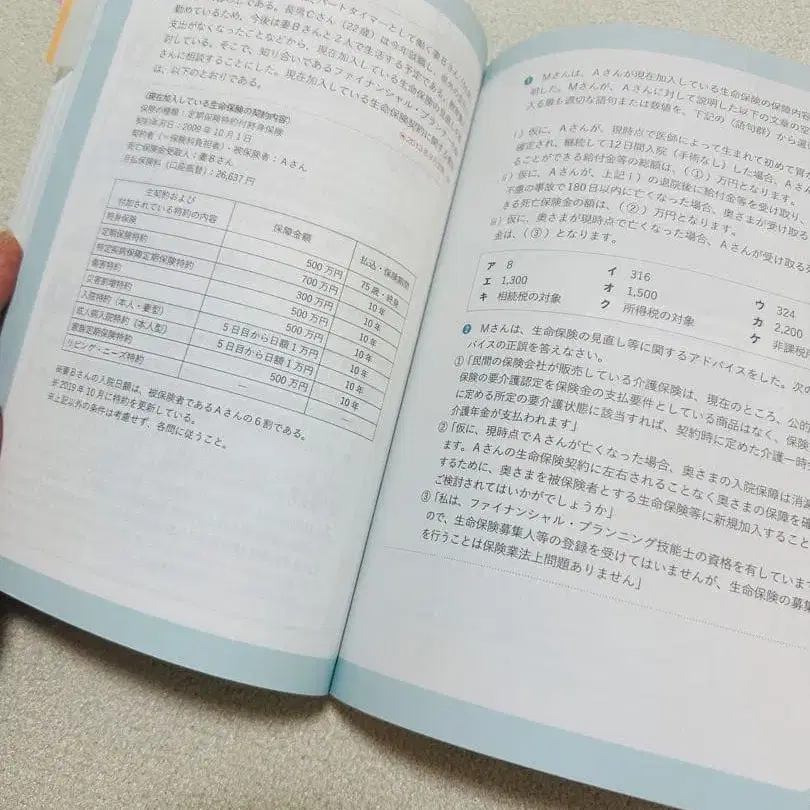 パートタイマーとして働く妻Bさん
である。長男Cさん（22歳）は今年就職し、
勤めているため、今後は妻Bさんと2人で生活する予定である。
支出がなくなったことなどから、現在加入している生命保険の
討している。そこで、知り合いであるファイナンシャル・プランナー
さんに相談することにした。現在加入している生命保険契約に関する
は、以下のとおりである。
〈現在加入している生命保険の契約内容〉
保険の種類：定期保険特約付終身保険
契約年月日：2009年10月1日
契約者（＝保険料負担者）・被保険者：Aさん
死亡保険金受取人：妻Bさん
月払保険料（口座振替）：26,637円
主契約および
付加されている特約の内容 保障金額 払込・保険期間
終身保険 500万円 75歳・終身
定期保険特約 700万円 10年
特定疾病保障定期保険特約 300万円 10年
傷害特約 500万円 10年
災害割増特約 500万円 10年
入院特約（本人・妻型） 5日目から日額1万円 10年
成人病入院特約（本人型） 5日目から日額1万円 10年
家族定期保険特約 500万円 10年
リビング・ニーズ特約 ―
※妻Bさんの入院日額は、被保険者であるAさんの6割である。
※2019年10月に特約を更新している。
※上記以外の条件は考慮せず、各問に従うこと。
❶ Mさんは、Aさんが現在加入している生命保険の保障内容
明した。Mさんが、Aさんに対して説明した以下の文章の空
入る最も適切な語句または数値を、下記の〈語句群〉から選
ⅰ）仮に、Aさんが、現時点で医師によって生まれて初めて胃が
確定され、継続して12日間入院（手術なし）した場合、A
ることができる給付金等の総額は、（①）万円となります。
ⅱ）仮に、Aさんが、上記ⅰ）の退院後に給付金等を受け取り、
不慮の事故で180日以内に亡くなった場合、奥さまが受け取る
きる死亡保険金の額は、（②）万円となります。
ⅲ）仮に、奥さまが現時点で亡くなった場合、Aさんが受け取る
金は、（③）となります。
ア 8 イ 316 ウ 324
エ 1,300 オ 1,500 カ 2,200
キ 相続税の対象 ク 所得税の対象 ケ 非課税
❷ Mさんは、生命保険の見直し等に関するアドバイスをした。次の
バイスの正誤を答えなさい。
①「民間の保険会社が販売している介護保険は、現在のところ、公的
保険の要介護認定を保険金の支払要件としている商品はなく、保険
に定める所定の要介護状態に該当すれば、契約時に定めた介護一時
介護年金が支払われます」
②「仮に、現時点でAさんが亡くなった場合、奥さまの入院保障は消滅
ます。Aさんの生命保険契約に左右されることなく奥さまの保障を確
するために、奥さまを被保険者とする生命保険等に新規加入すること
ご検討されてはいかがでしょうか」
③「私は、ファイナンシャル・プランニング技能士の資格を有しています
ので、生命保険募集人等の登録を受けてはいませんが、生命保険の募集
を行うことは保険業法上問題ありません」